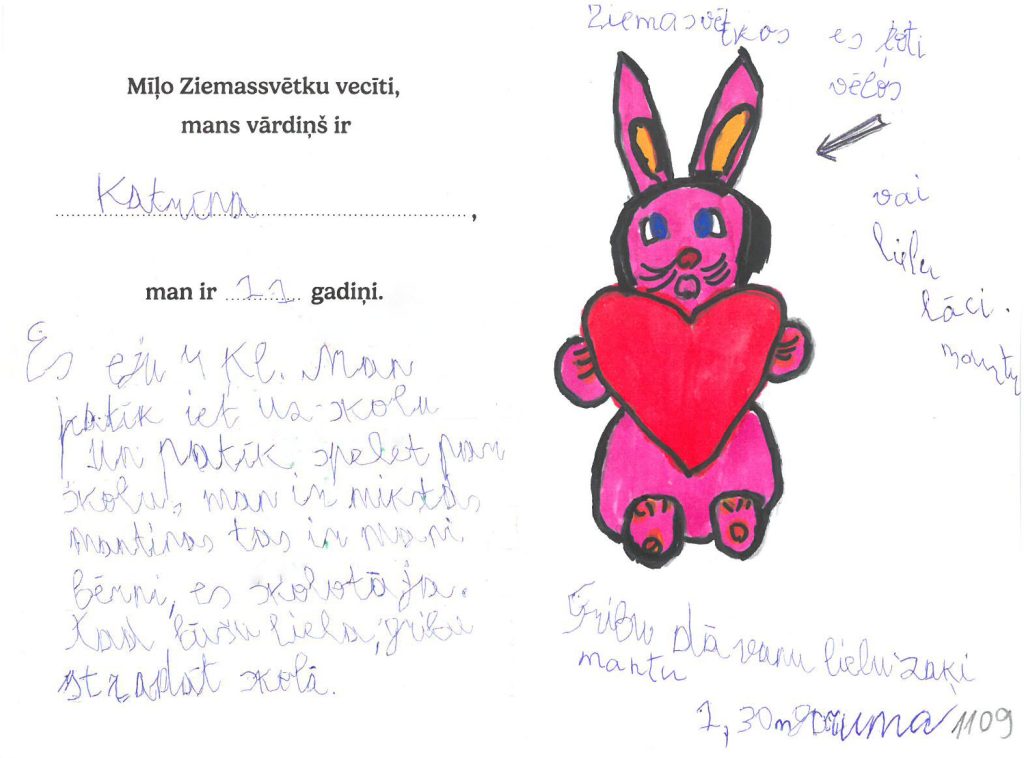 Mīļo Ziemassvētku vecīti,
mans vārdiņš ir
Katrīna,
man ir 11 gadiņi.
Es eju 4 kl. Man
patīk iet uz skolu
un patīk spelet par
skolu, man ir mikstas
mantinas tas ir mani
bērni, es skolotāja.
Kad būšu liela, gribu
strādāt skolā.
Ziemasvētkos es ļoti
vēlos
vai
lielu
lāci.
mantu
Gribu dāvanu lielu zaķi
mantu
1,30m
1109